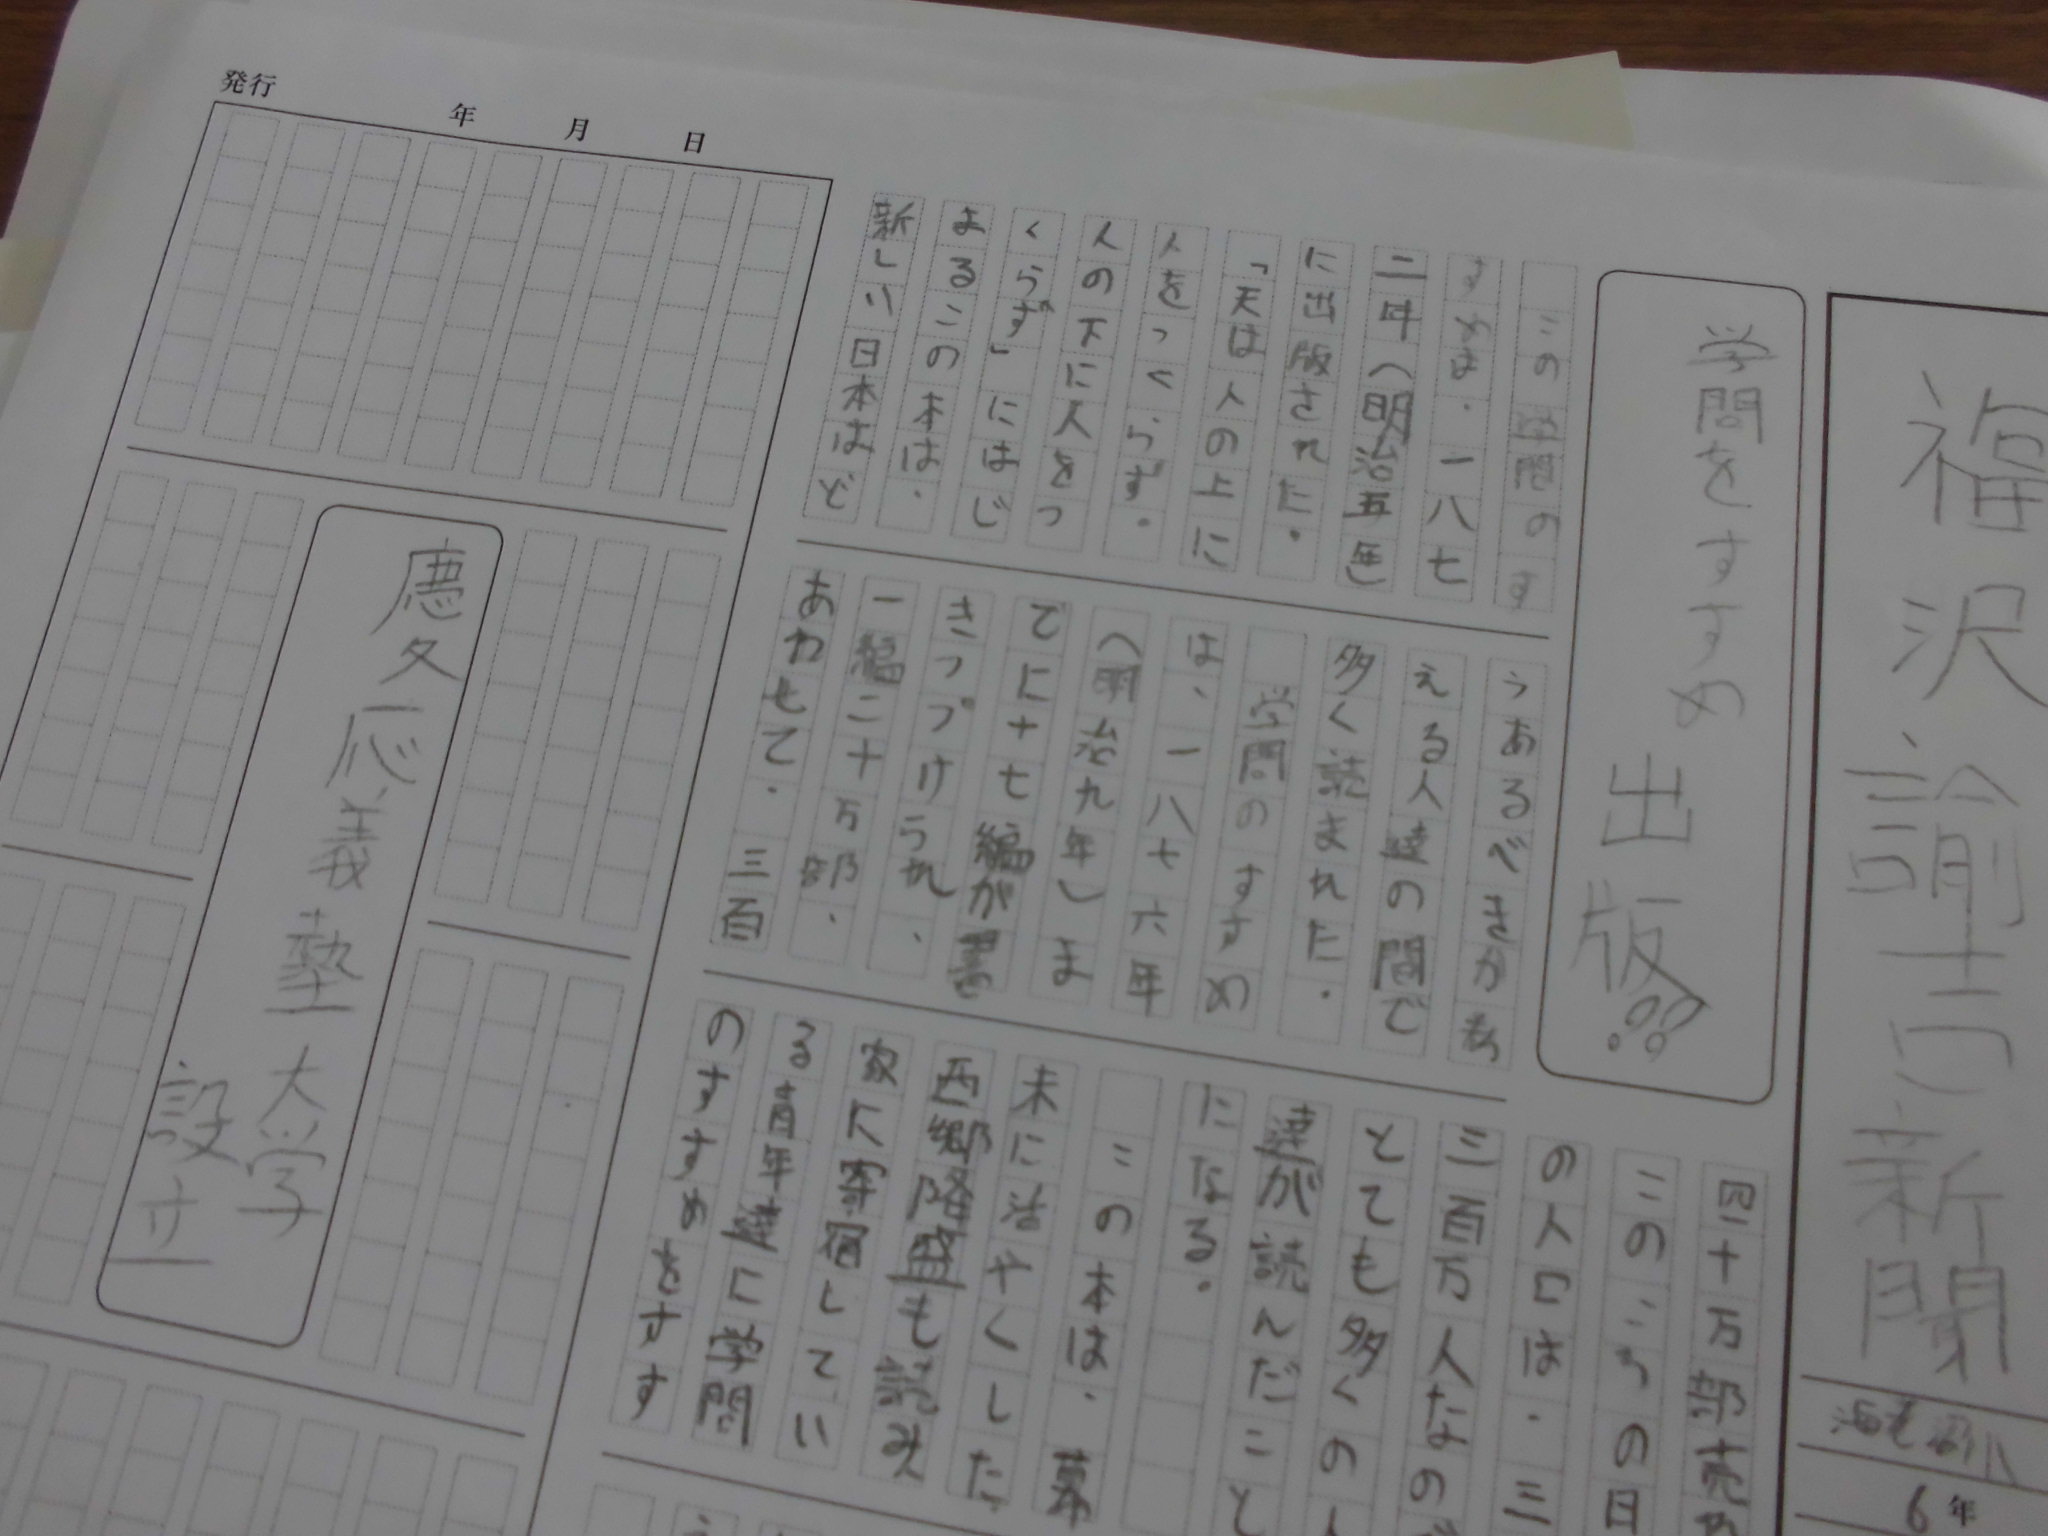 福沢諭吉新聞
6年
学問をすすめ
出版??
この学問のす
すめは、一八七
二年(明治五年)
に出版された。
「天は人の上に
人をつくらず。
人の下に人をつ
くらず」にはじ
まるこの本は、
新しい日本はど
うあるべきか考
える人達の間で
多く読まれた。
学問のすすめ
は、一八七六年
(明治九年)ま
でに十七編が書
きつづけられ、
一編二十万部、
あわせて、三百
四十万部売れ
このころの日
の人口は、三
三百万人なので
とても多くの人
達が読んだこと
になる。
この本は、幕
末に活やくした
西郷隆盛も読み
家に寄宿してい
る青年達に学問
のすすめをすす
慶応義塾大学
設立
発行 年 月 日